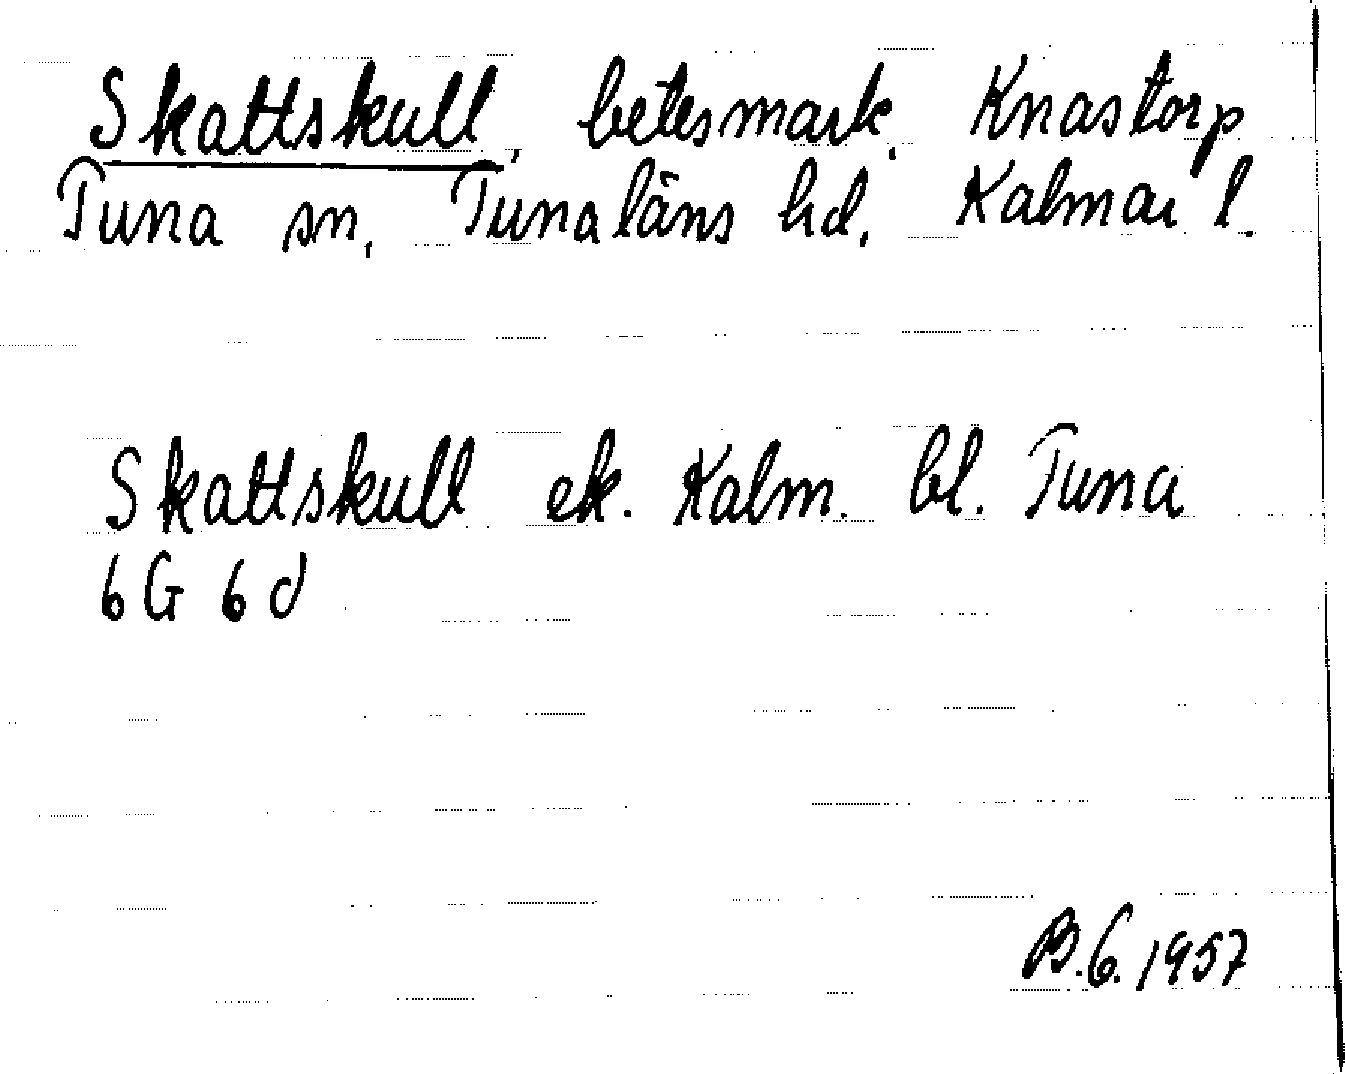 Skattskull, betesmark, Knastorp
Tuna sn, Tunaläns hd, Kalmar l.
Skattskull ek. Kalm. bl. Tuna
6G 6d
B.G. 1957